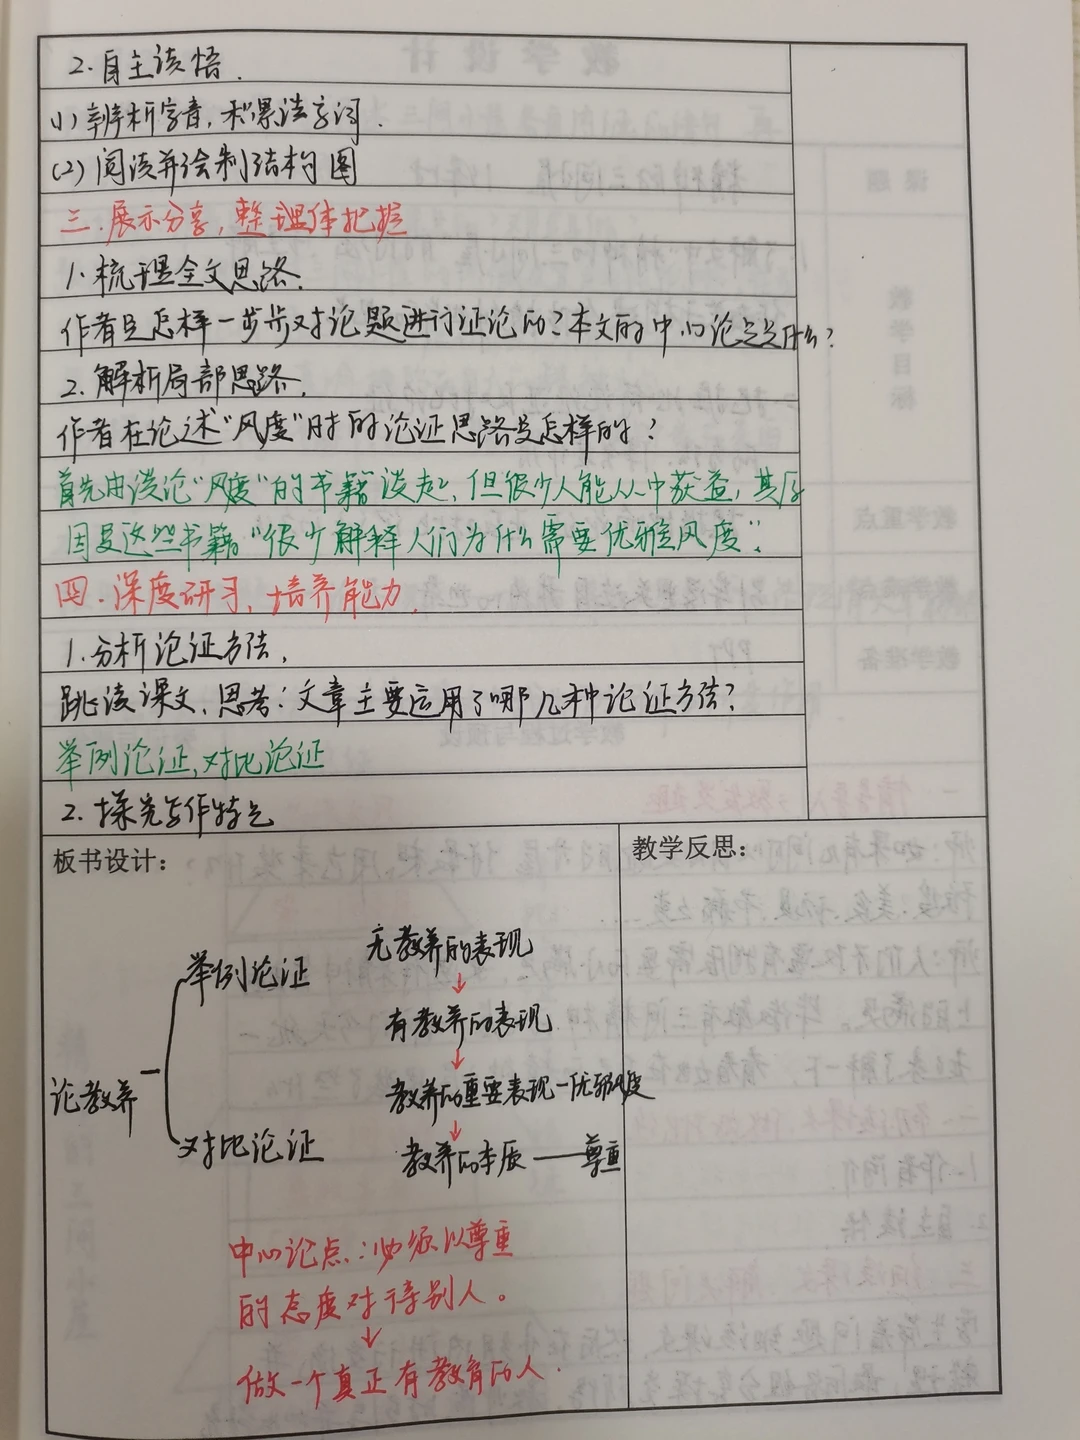 2.自主读悟.
(1)辨析字音,积累读字词.
(2)阅读并绘制结构图
三.展示分享,整理体把握
1.梳理全文思路.
作者是怎样一步步对论题进行证论的?本文的中心论点是什么?
2.解析局部思路.
作者在论述“风度”时的论证思路是怎样的?
首先由谈论“风度”的书籍谈起,但很少人能从中获益,其原
因是这些书籍“很少解释人们为什么需要优雅风度”.
四.深度研习,培养能力.
1.分析论证方法.
跳读课文,思考:文章主要运用了哪几种论证方法?
举例论证,对比论证
2.探究写作特点
板书设计:
教学反思:
论教养
举例论证
对比论证
无教养的表现
↓
有教养的表现
↓
教养的重要表现一优雅风度
↓
教养的本质——尊重
中心论点:必须以尊重
的态度对待别人。
↓
做一个真正有教育的人.